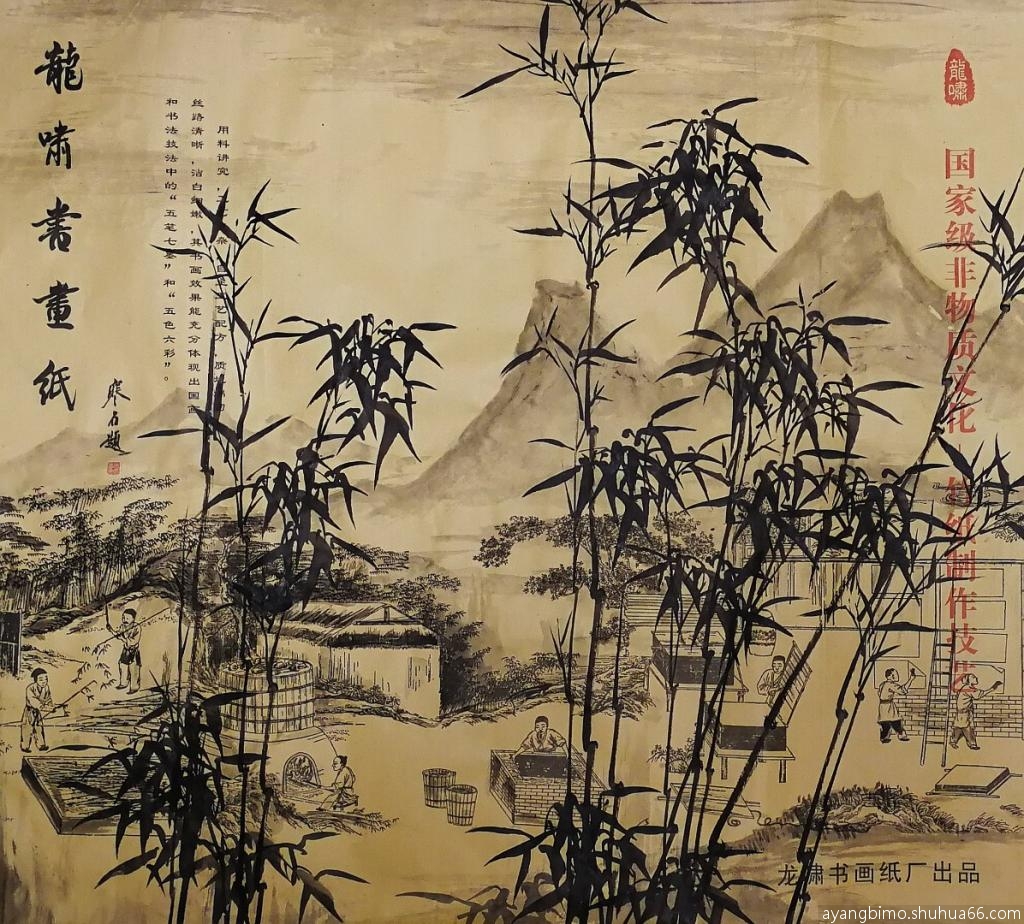 龍嘯
国家级非物质文化—竹纸制作技艺
龍嘯書畫紙
题
用料讲究,杂艺配方,质
丝路清晰,洁白细嫩,其书画效果能充分体现出国画
和书法技法中的“五笔七墨”和“五色六彩”。
龙啸书画纸厂出品
ayangbimo.shuhua66.com